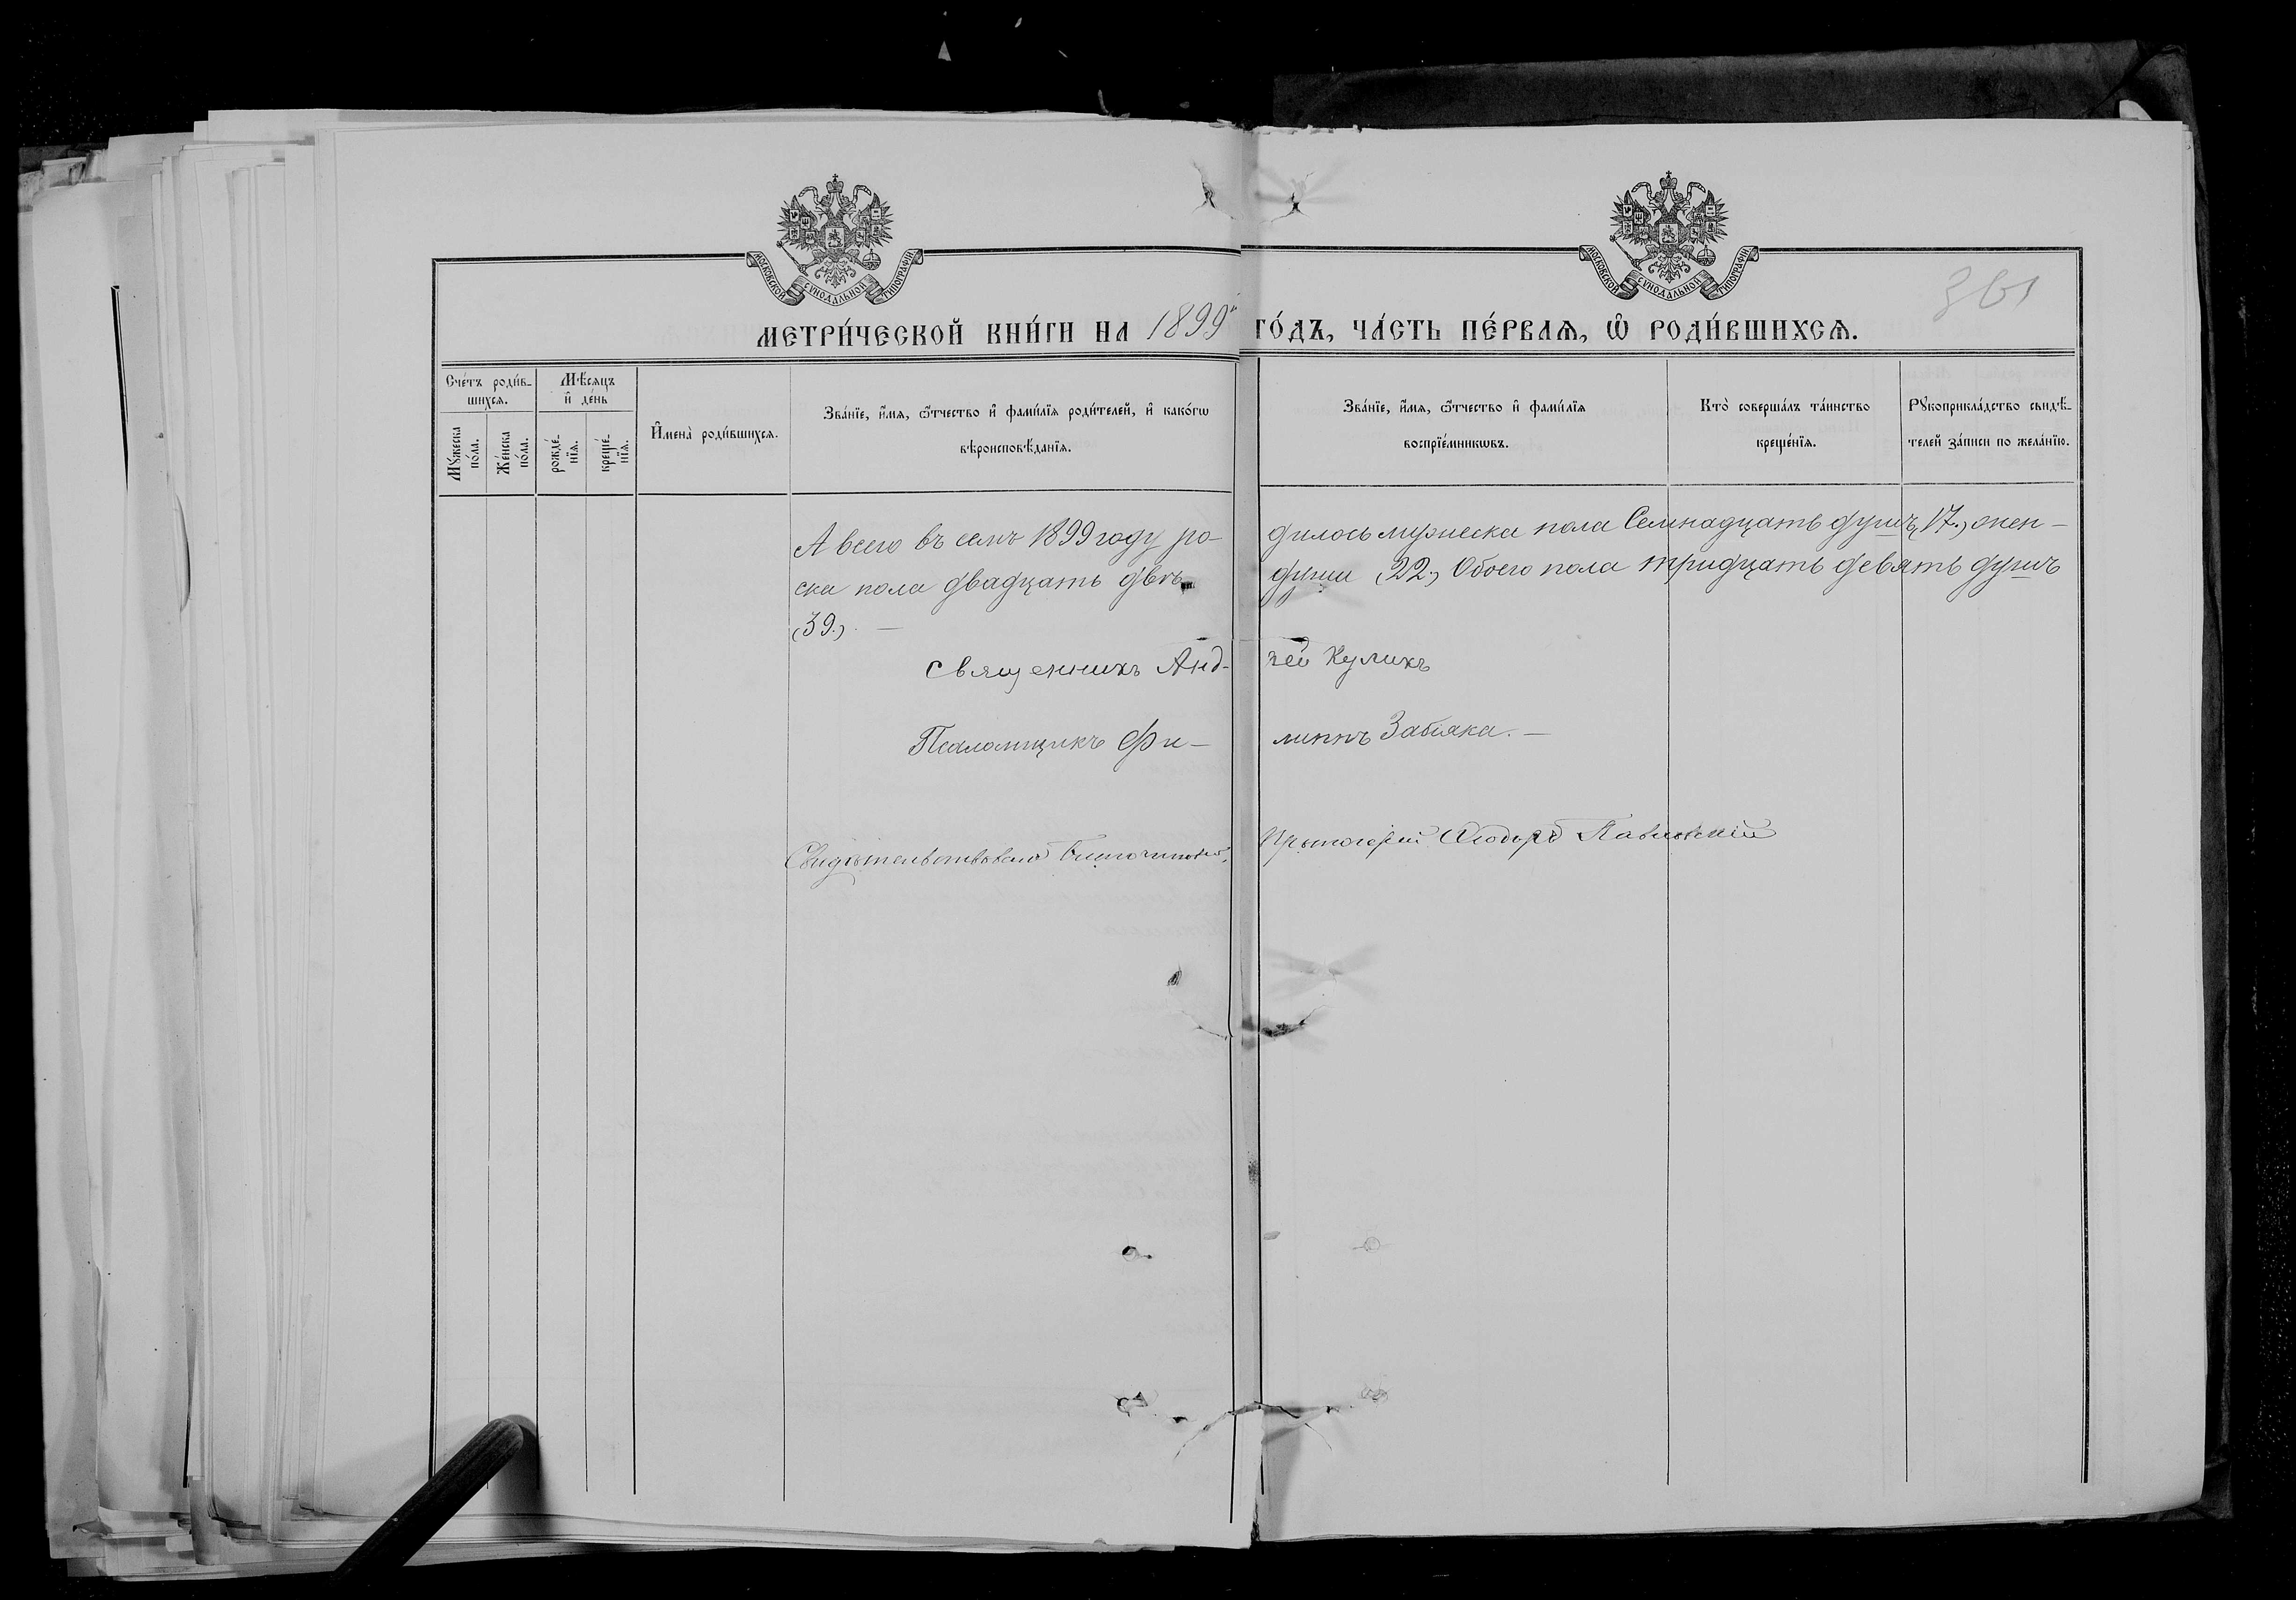 МОСКОВСКОЙ СѴНОДАЛЬНОЙ ТИПОГРАФІИ
МОСКОВСКОЙ СѴНОДАЛЬНОЙ ТИПОГРАФІИ
361
МЕТРИ́ЧЕСКОЙ КНИ́ГИ НА 1899й ГО́ДЪ, ЧА́СТЬ ПЕ́РВАѦ, Ѿ РОДИ́ВШИХСѦ.
Сче́тъ роди́в-
шихсѧ.
Мꙋ́жеска
по́ла.
Же́нска
по́ла.
Мѣ́сѧцъ
и҆ де́нь
рожде́-
нїѧ.
креще́-
нїѧ.
И҆мена̀ роди́вшихсѧ.
Зва́нїе, и҆́мѧ, ѻ҆́тчество и҆ фами́лїѧ роди́телей, и҆ како́гѡ
вѣроисповѣ́данїѧ.
Зва́нїе, и҆́мѧ, ѻ҆́тчество и҆ фами́лїѧ
воспрїе́мникѡвъ.
Кто̀ соверша́лъ та́инство
креще́нїѧ.
Рꙋкоприкла́дство свидѣ́-
телей за́писи по жела́нїю.
А всего въ семъ 1899 году ро- дилось мужеска пола Семнадцать душъ (17.), жен-
ска пола двадцать двѣ души (22.), Обоего пола тридцать девять душъ
(39.). —
Священникъ Анд- рей Куликъ
Псаломщикъ Фи- липпъ Забіяка. —
Свидѣтельствовалъ Благочинный, Протоіерей Ѳеодоръ Павловскій